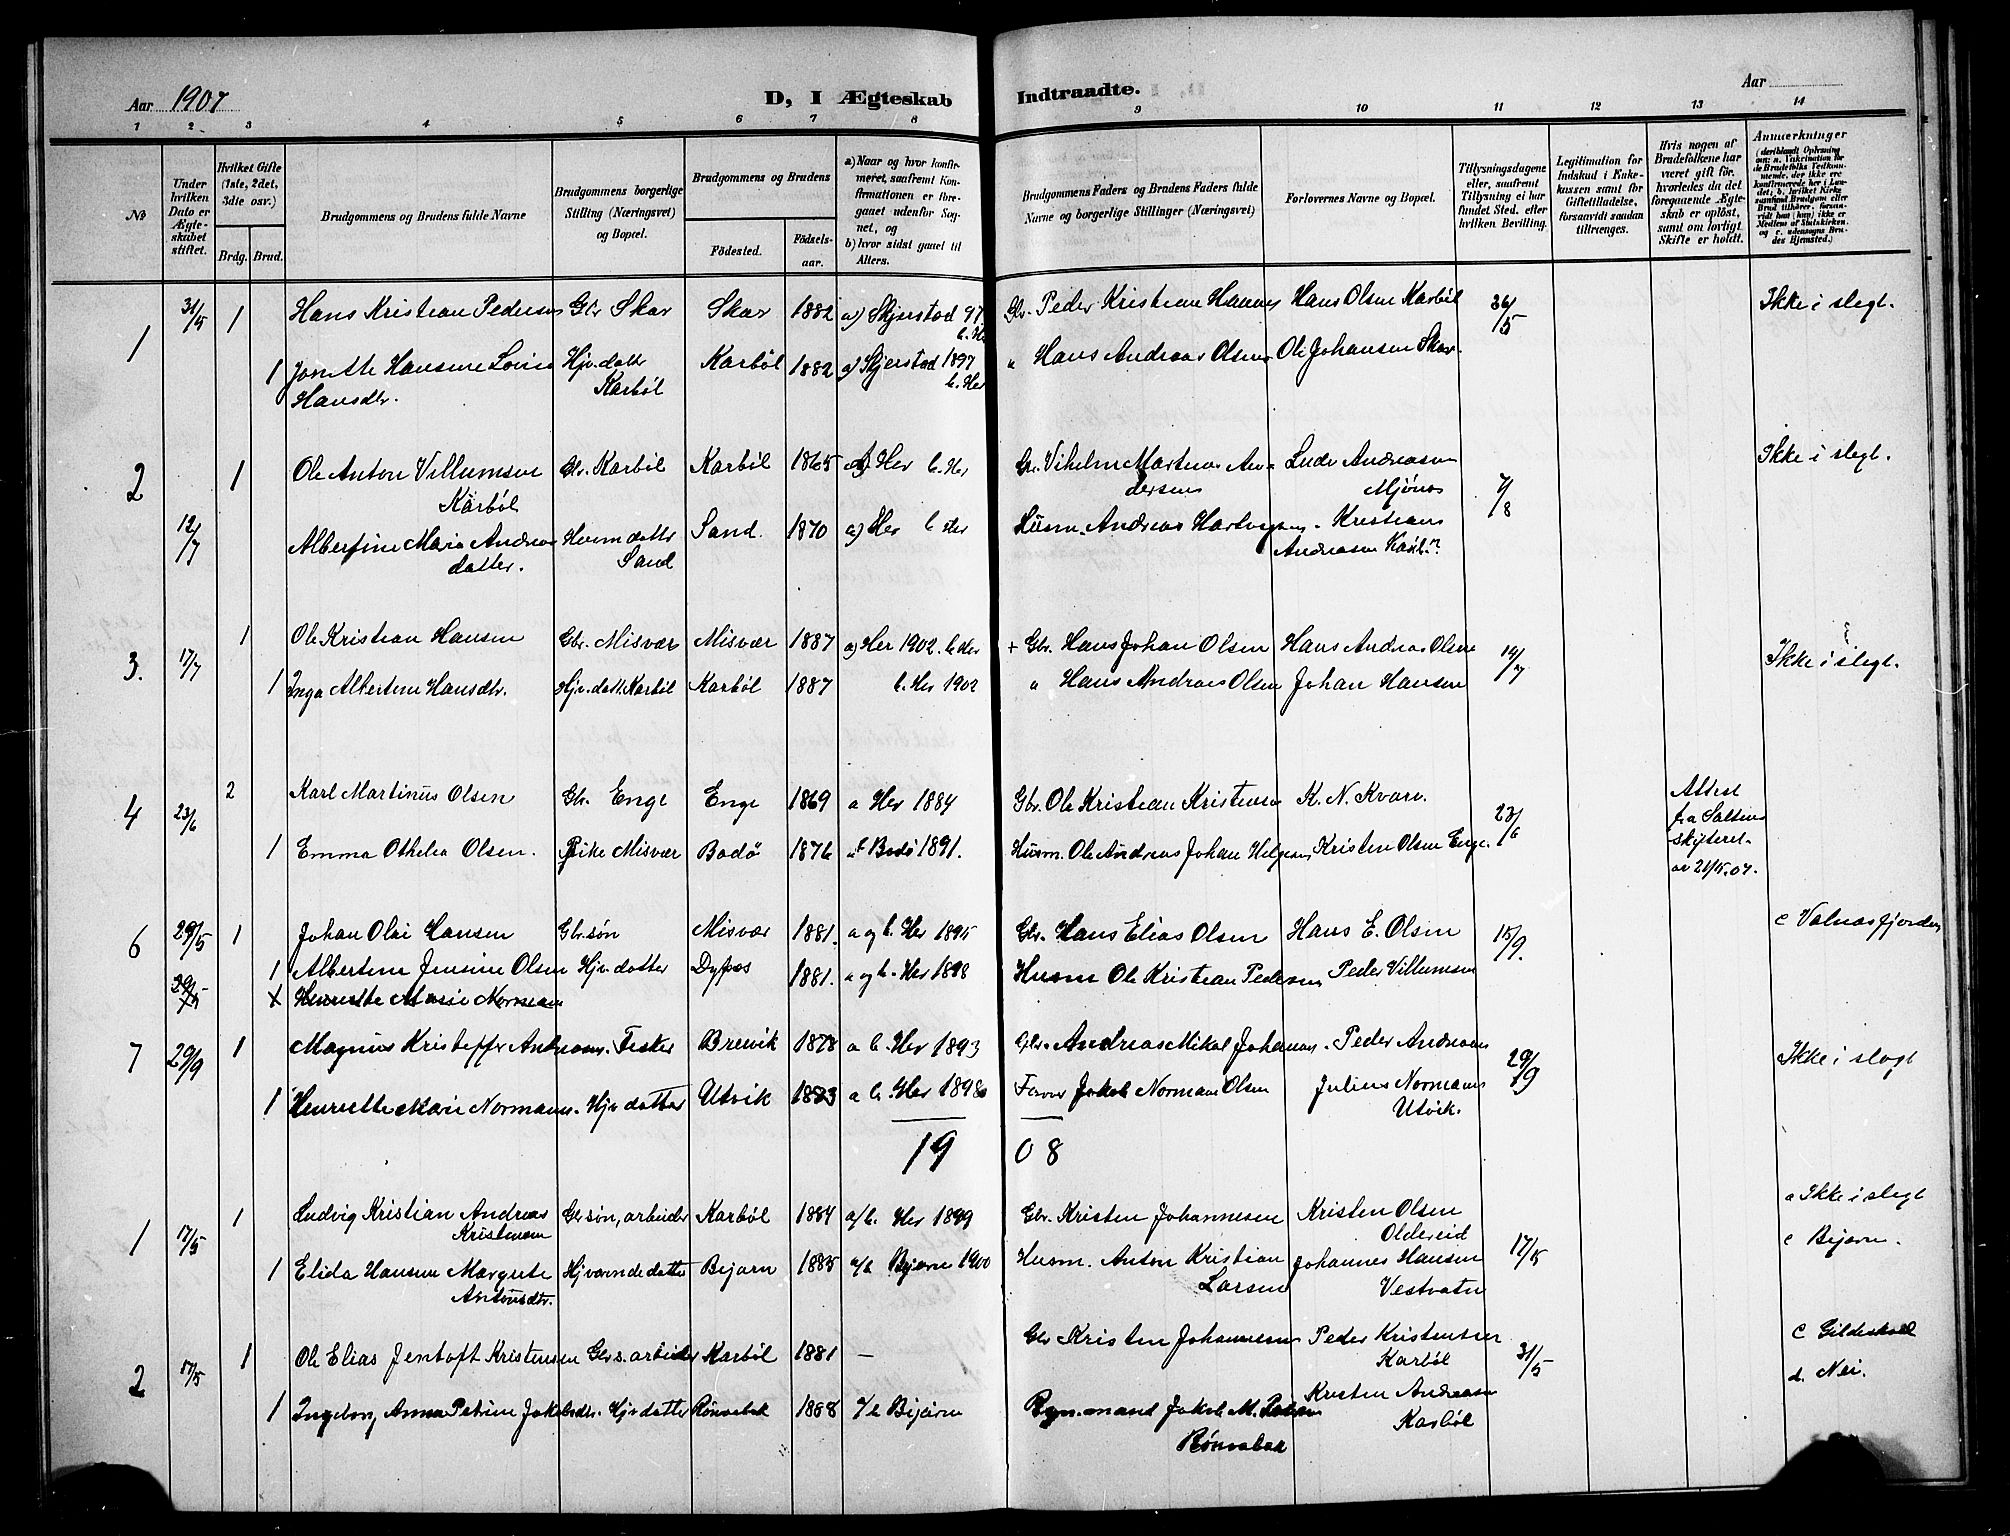 Aar 1907
D, I Ægteskab Indtraadte.
Aar
1 2 3 4 5 6 7 8 9 10 11 12 13 14
No
Under hvilken Dato er Ægteskabet stiftet.
Hvilket Gifte (1ste, 2det, 3die osv.)
Brdg. Brud.
Brudgommens og Brudens fulde Navne
Brudgommens borgerlige Stilling (Næringsvei) og Bopæl.
Brudgommens og Brudens
Födested.
Födsels-aar.
a) Naar og hvor konfirmeret, saafremt Konfirmationen er foregaaet udenfor Sognet, og
b) hvor sidst gaaet til Alters.
Brudgommens Faders og Brudens Faders fulde Navne og borgerlige Stillinger (Næringsvei)
Forlovernes Navne og Bopæl.
Tillysningsdagene eller, saafremt Tillysning ei har fundet Sted, efter hvilken Bevilling.
Legitimation for Indskud i Enkekassen samt for Giftetilladelse, forsaavidt saadan tiltrænges.
Hvis nogen af Brudefolkene har været gift før, hvorledes da det foregaaende Ægteskab er opløst, samt om lovligt Skifte er holdt.
Anmerkninger
1 31/5 1 Hans Kristian Pedersen Gbr Skar Skar 1882 a) Skjerstad 97 b. Her Gbr. Peder Kristian Hansen Hans Olsen Karbøl 26/5 Ikke i slegt.
1 Jonette Hansine Lovise Hansdtr. Hjv. datt Karbøl Karbøl 1882 a) Skjerstad 1897 b. Her " Hans Andreas Olsen Ole Johansen Skar.
2 12/7 1 Ole Anton Villumsen Karbøl Gbr. Karbøl Karbøl 1865 a) Her b. Her Gbr. Vilhelm Martinus Andersens Lude Andreasen Mjönes 7/8 Ikke i slegt.
Albertine Marie Andreasdatter. Husm datter Sand Sand. 1870 a) Her b Her Husm. Andreas Hartvigsen. Kristians Andreasen
3. 17/7 1 Ole Kristian Hansen Gbr. Misvær Misvær 1887 a) Her 1902. b Her + Gbr. Hans Johan Olsen Hans Andreas Olsen 14/7 Ikke i slegt.
1 Inga Albertine Hansdtr. Hjv. datt. Karbøl Karbøl 1887 b. Her 1902 " Hans Andreas Olsen Johan Hansen
4 23/6 2 Karl Martinus Olsen Gbr. Enge Enge 1869 a Her 1884 Gbr. Ole Kristian Kristensen K. N. Kvarv. 23/6 Attest fra Salten skifteret av 21/5.07.
1 Emma Othelia Olsen. Pike Misvær Bodø 1876 Bodö 1891. Husm. Ole Andreas Johan Helgesen Kristen Olsen Enge.
6 29/5 1 Johan Olai Hansen Gbr. søn Misvær 1881. a og b. Her 1895 Gbr. Hans Elias Olsen Hans E. Olsen 15/9. c Valnesfjorden
1 Albertine Jensine Olsen Hjv. datter Dypos 1881. a og b. Her 1898 Husm Ole Kristian Pedersen, Peder Villumsen
29/5 X Henriette Marie Norman
7 29/9 1 Magnus Kristoffer Andreasen. Fisker Breivik 1878 a b. Her 1893 Gbr. Andreas Mikal Johansen. Peder Andreasen 29/9 Ikke i slegt
1 Henriette Marie Normann. Hjv datter Utvik 1883 a b. Her 1898 Jakob Normann Olsen Julius Normann Utvik.
19 08
1 17/5 1 Ludvig Kristian Andreas Kristensen Gbr søn, arbeider Karbøl 1884 a/b. Her 1899 Gbr. Kristen Johannesen Kristen Olsen Oldereid 17/5 a Ikke i slegt
1 Elida Hansine Margrete Antonsdtr. Hjværende datter Bejarn 1885 a/b Bejarn 1900 Husm. Anton Kristian Larsen Johannes Hansen Vestvatn c Bejarn.
2 17/5 1 Ole Elias Jentoft Kristensen Gbr s. arbeider Karbøl 1881 — Gbr Kristen Johannesen Peder Kristensen Karbøl 31/5 c Gildeskaal
1 Ingeborg Anna Petrine Jakobsdtr. Hjv datter 1888 Bejarn Bygn. mand Jakob M. Kristen Andreasen Karbøl d. Nei.